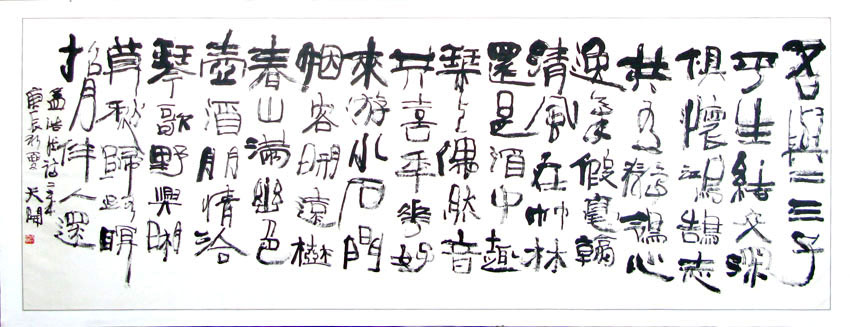 吾與二三子
平生結交深
俱懷鴻鵠志
共有鶺鴒心
逸氣假毫翰
清風在竹林
還是酒中趣
琴上偶然音
共喜年華好
來游水石間
烟容開遠樹
春山滿幽色
壺酒朋情洽
琴歌野興閑
莫愁歸路暝
招月伴人還
孟浩然詩二首
庚辰初夏 天開